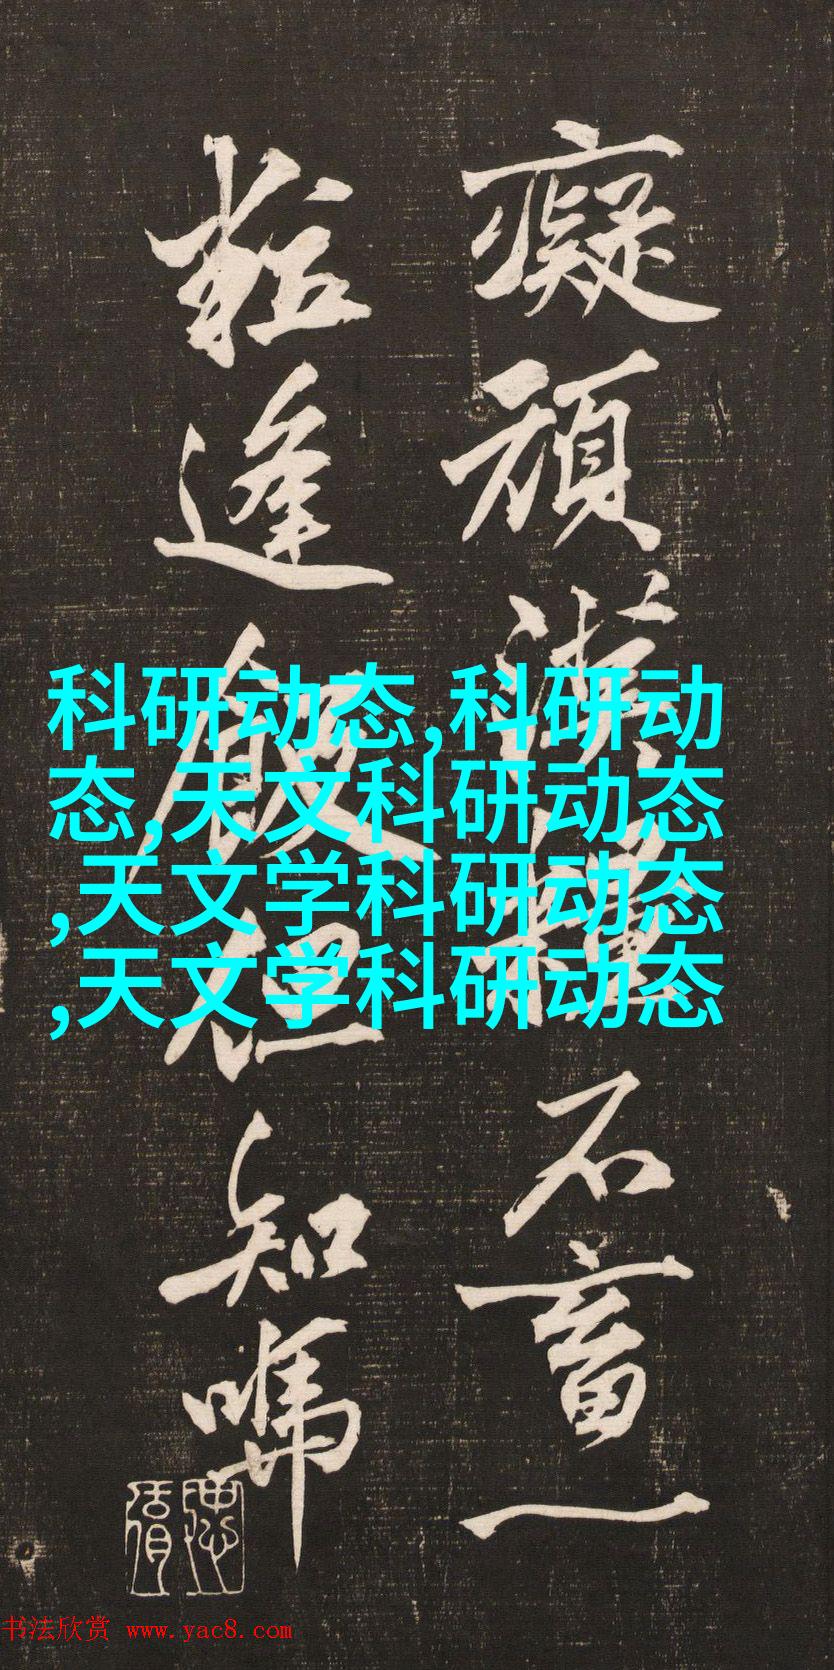 癡頑漢擔石畜一
粒逢飢但知嗎
科研动态,科研动
态,天文科研动态
,天文学科研动态
,天文学科研动态
书法欣赏 www.yac8.com